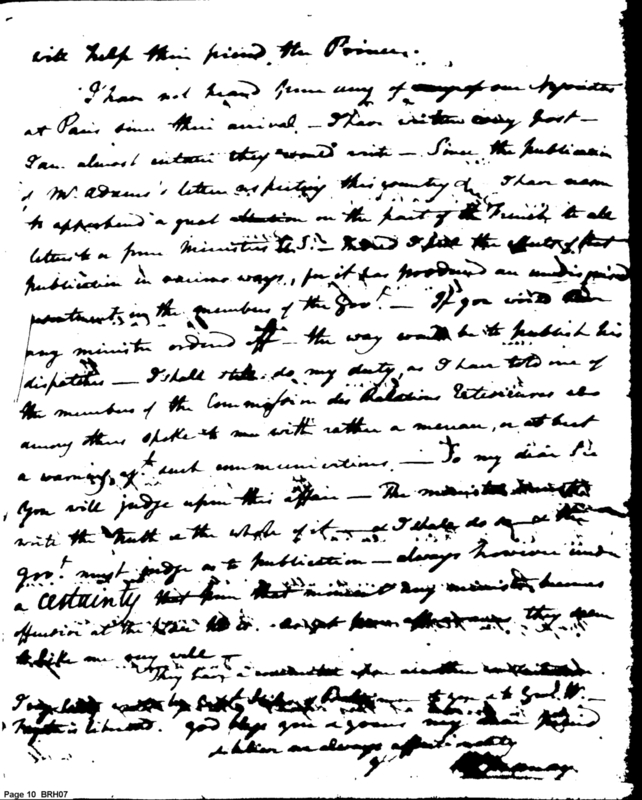 will help their friend the Prince.
I have not heard from any of our Appointees
at Paris since their arrival – I have written every post –
I am almost certain they would write – Since the publication
of Mr. Adams's letters respecting this country &c I have reason
to apprehend a great attention on the part of the French to all
letters to or from Ministers U.S. – Indeed I feel the effects of that
publication in various ways, for it has produced an undisguised
in the members of the Govt. – If you would have
any minister ordered off – the way would be to publish his
dispatches – I shall still do my duty, as I have told one of
the members of the Commission des Relations Exterieures who
among others spoke to me with rather a menace, or at best
a warning agt. such communications. – So my dear Sir
You will judge upon this affair – The
write the truth & the whole of it – & I shall do so – & the
govt. must judge as to publication – always however under
a certainty that from that moment any minister becomes
offensive at the place he is. they seem
to like me very well –
They have a
to you & to Genl. W. –
is liberated. God bless you & yours my dear friend
& believe me always affectionately